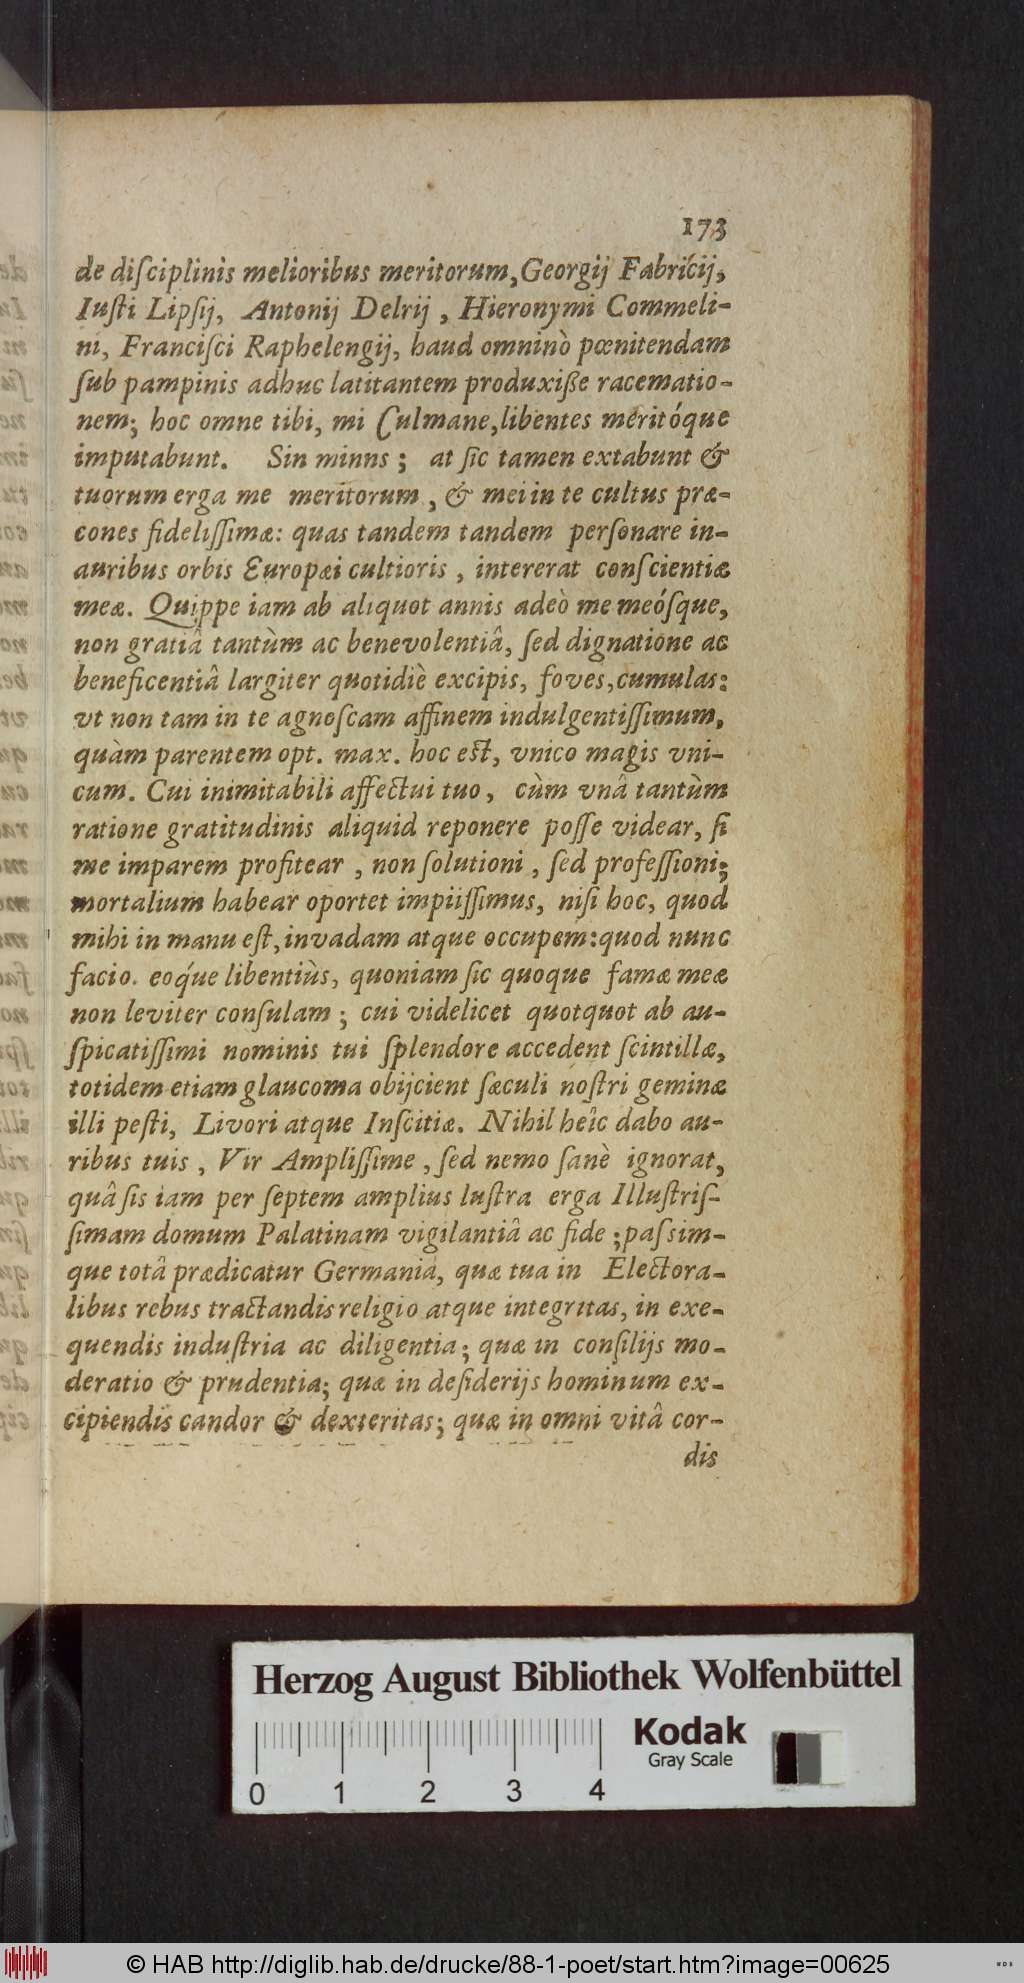 173
de diſciplinis melioribus meritorum, Georgij Fabricij,
Iuſti Lipſij, Antonij Delrij, Hieronymi Commeli-
ni, Franciſci Raphelengij, haud omninò pœnitendam
ſub pampinis adhuc latitantem produxiße racematio-
nem; hoc omne tibi, mi Culmane, libentes meritóque
imputabunt. Sin minns; at ſic tamen extabunt &
tuorum erga me meritorum, & mei in te cultus præ-
cones fideliſſimæ: quas tandem tandem perſonare in-
auribus orbis Europæi cultioris, intererat conſcientiæ
meæ. Quippe iam ab aliquot annis adeò me meóſque,
non gratiâ tantùm ac benevolentiâ, ſed dignatione ac
beneficentiâ largiter quotidiè excipis, foves, cumulas:
vt non tam in te agnoſcam affinem indulgentiſſimum,
quàm parentem opt. max. hoc eſt, vnico magis vni-
cum. Cui inimitabili affectui tuo, cùm vnâ tantùm
ratione gratitudinis aliquid reponere poſſe videar, ſi
me imparem profitear, non ſolutioni, ſed profeſſioni;
mortalium habear oportet impiiſſimus, niſi hoc, quod
mihi in manu eſt, invadam atque occupem: quod nunc
facio. eoq́ue libentiùs, quoniam ſic quoque famæ meæ
non leviter conſulam; cui videlicet quotquot ab au-
ſpicatiſſimi nominis tui ſplendore accedent ſcintillæ,
totidem etiam glaucoma obijcient ſæculi noſtri geminæ
illi peſti, Livori atque Inſcitiæ. Nihil heîc dabo au-
ribus tuis, Vir Ampliſſime, ſed nemo ſanè ignorat,
quâ ſis iam per ſeptem amplius luſtra erga Illuſtriſ-
ſimam domum Palatinam vigilantiâ ac fide; paſsim-
que totâ prædicatur Germaniâ, quæ tua in Electora-
libus rebus tractandis religio atque integritas, in exe-
quendis induſtria ac diligentia; quæ in conſilijs mo-
deratio & prudentia; quæ in deſiderijs hominum ex-
cipiendis candor & dexteritas; quæ in omni vitâ cor-
dis
Herzog August Bibliothek Wolfenbüttel
Kodak
Gray Scale
0 1 2 3 4
© HAB http://diglib.hab.de/drucke/88-1-poet/start.htm?image=00625